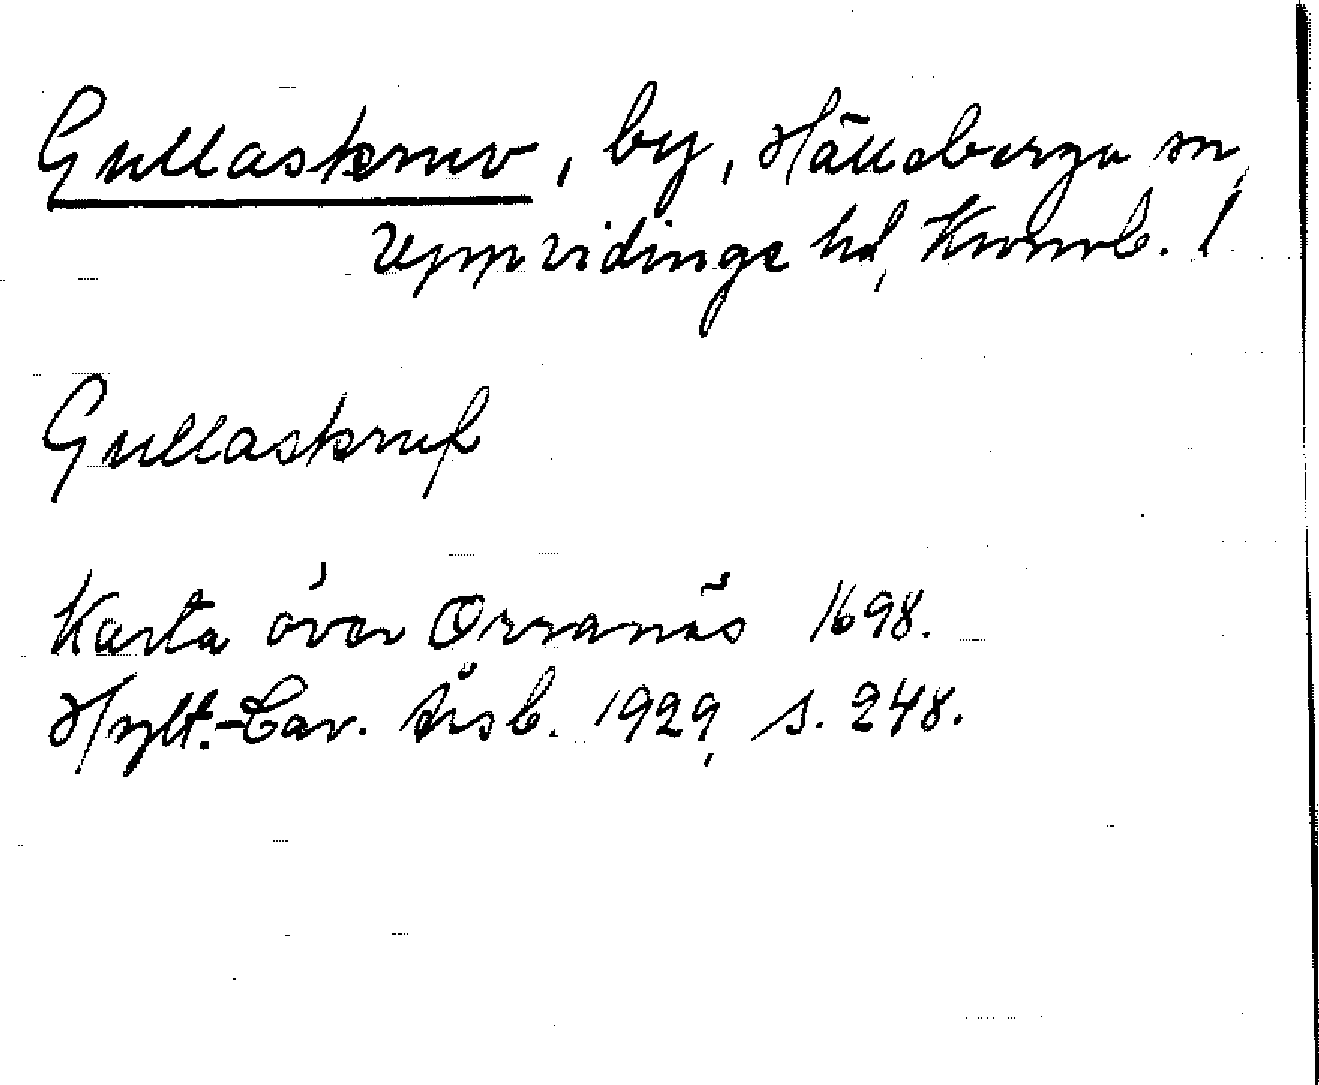 Gullaskruv, by, Hälleberga sn,
Uppvidinge hd, Kronob. l
Gullaskruf
Karta över Orranäs 1698.
Hylt.-Cav. Årsb. 1929, s. 248.